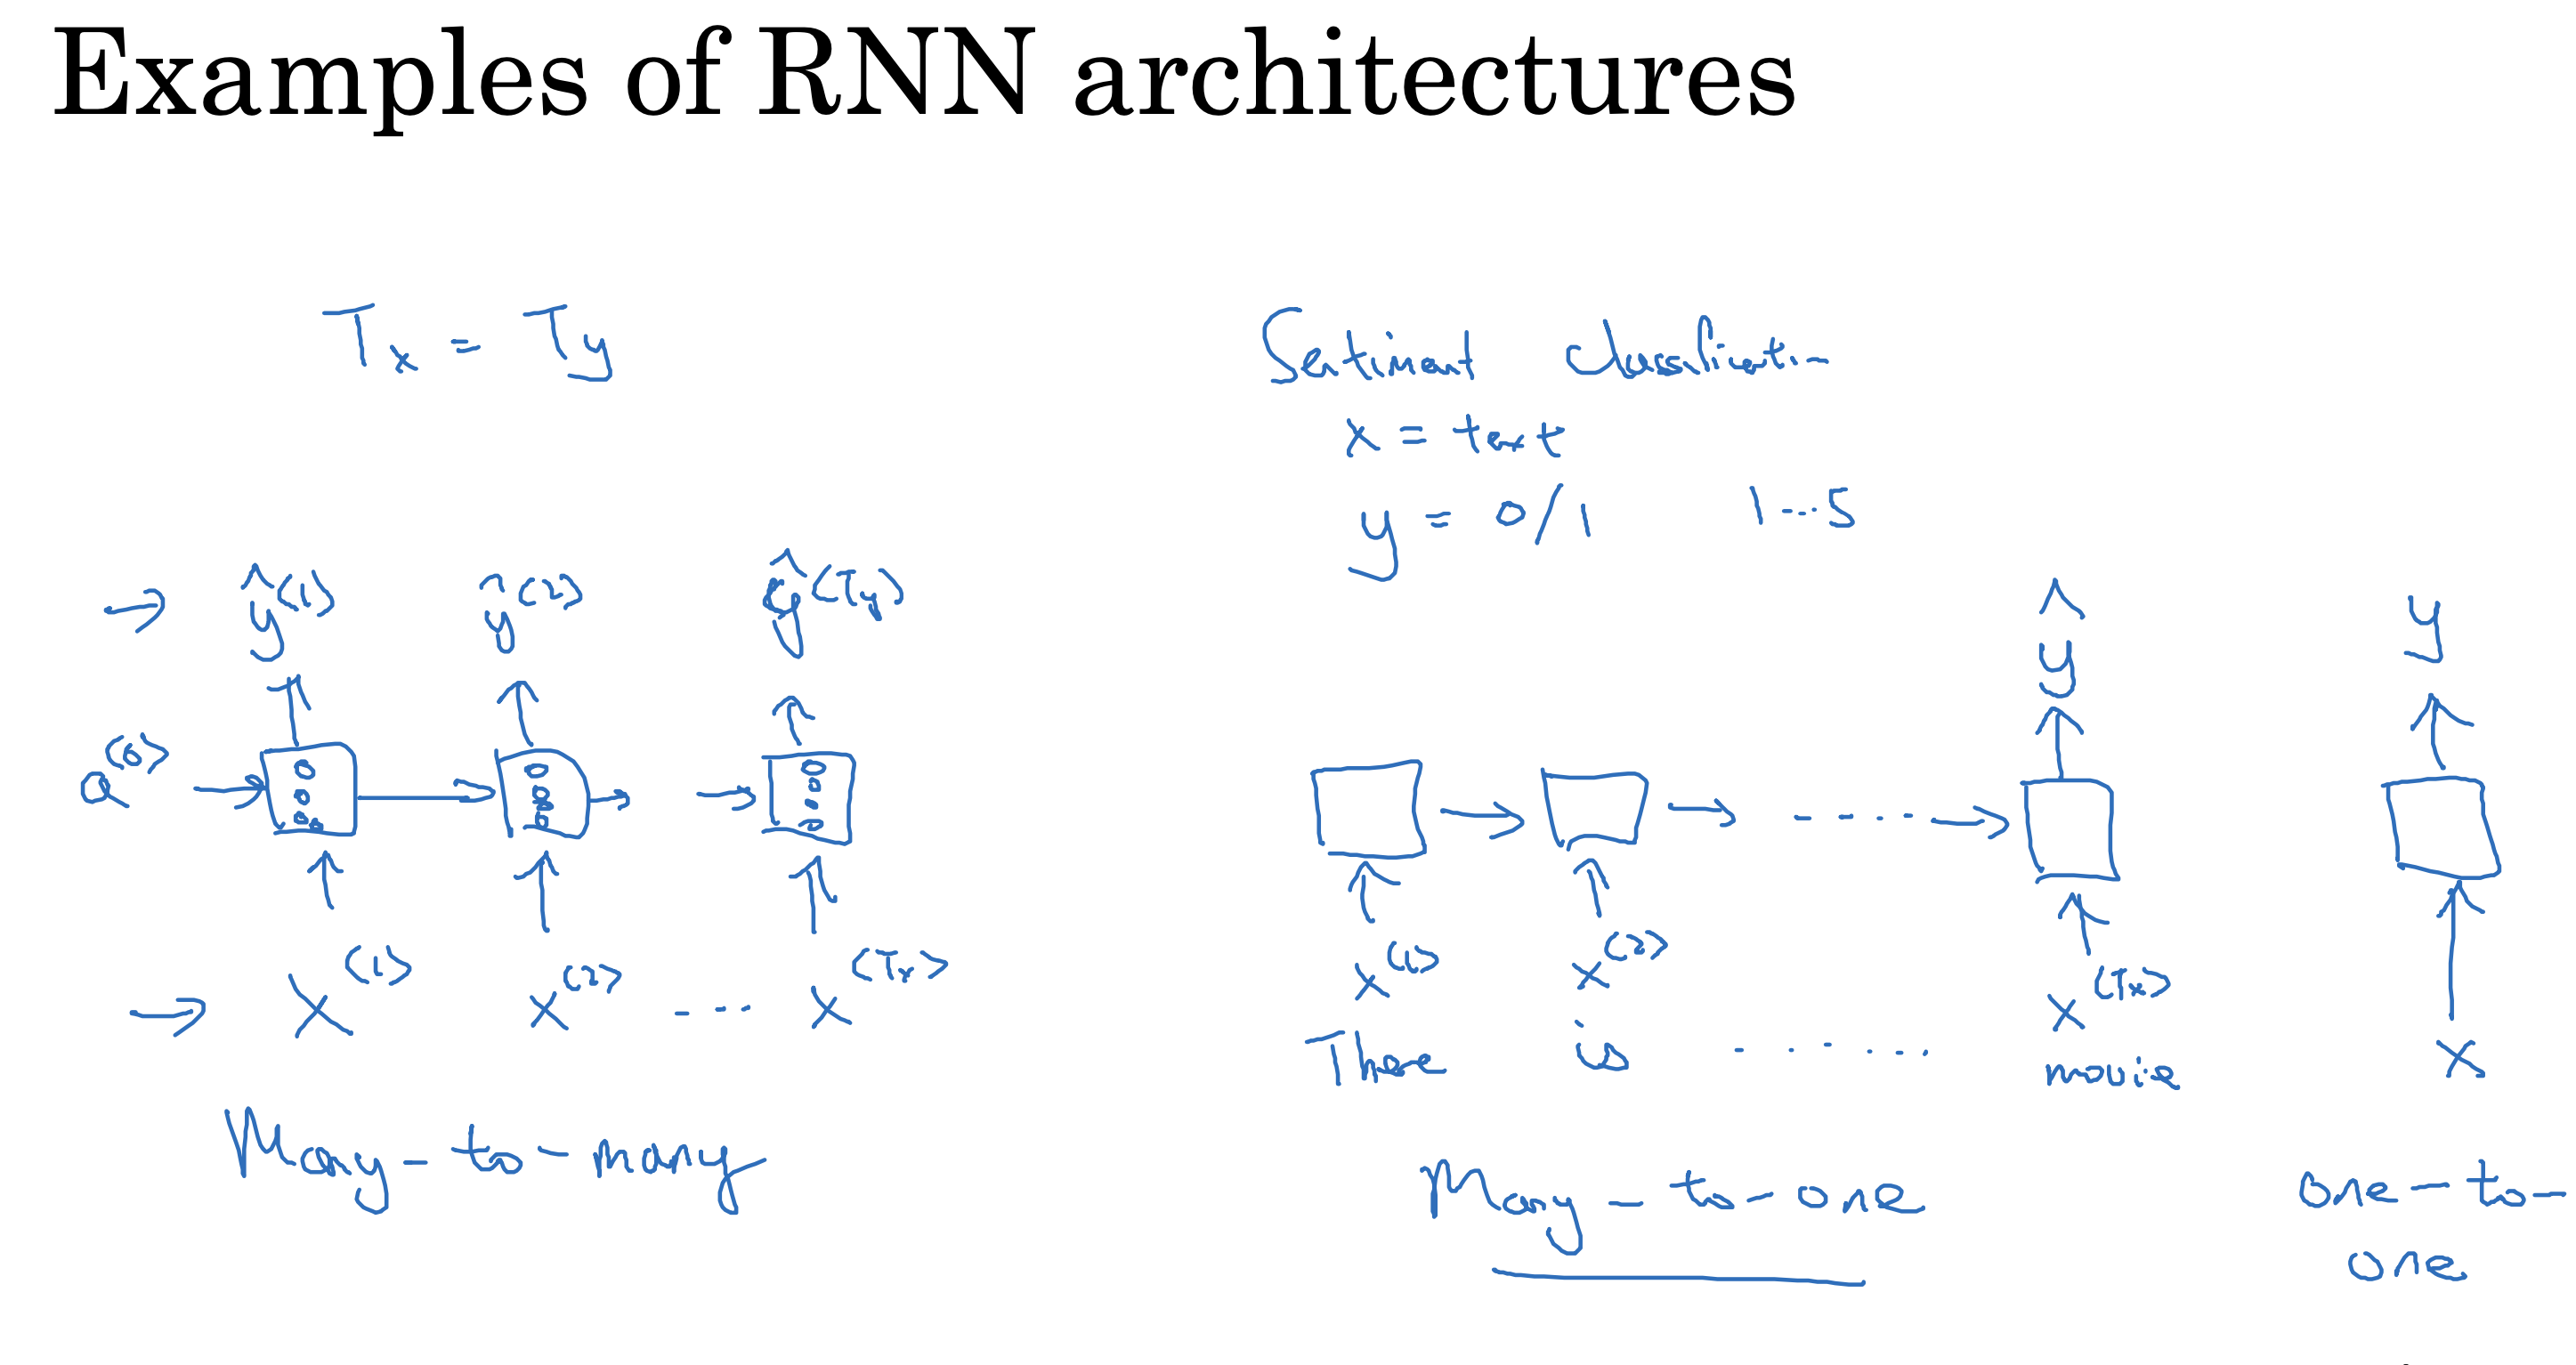 Examples of RNN architectures
Tx = Ty
→ ŷ<1> ŷ<2> ŷ<Ty>
a<0>
→ x<1> x<2> --- x<Tx>
Many-to-many
Sentiment classification
x = text
y = 0/1 1...5
ŷ
x<1> x<2> x<Tx>
There is ...... movie
Many-to-one
y
x
one-to-
one